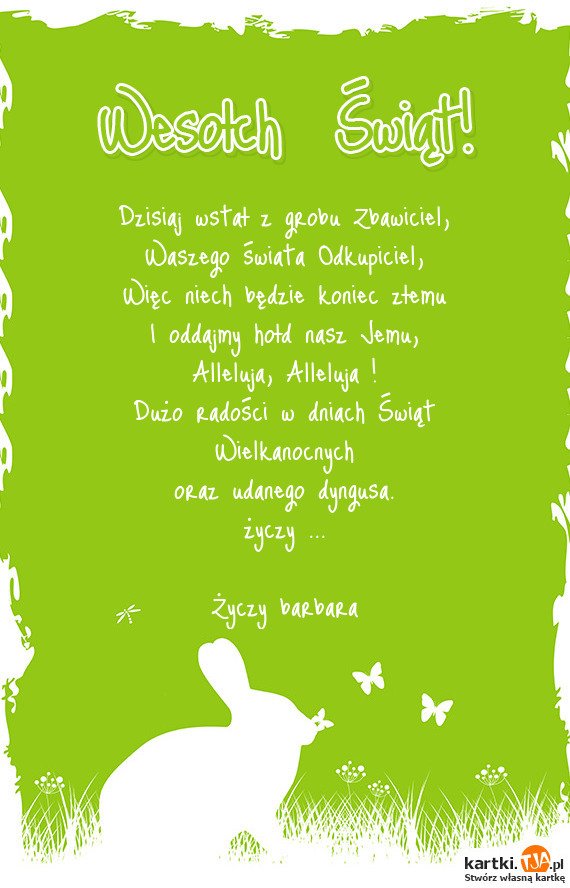 Wesołch Świąt!
Dzisiaj wstał z grobu Zbawiciel,
Waszego świata Odkupiciel,
Więc niech będzie koniec złemu
I oddajmy hołd nasz Jemu,
Alleluja, Alleluja !
Dużo radości w dniach Świąt
Wielkanocnych
oraz udanego dyngusa.
życzy ...
Życzy barbara
kartki.TJA.pl
Stwórz własną kartkę